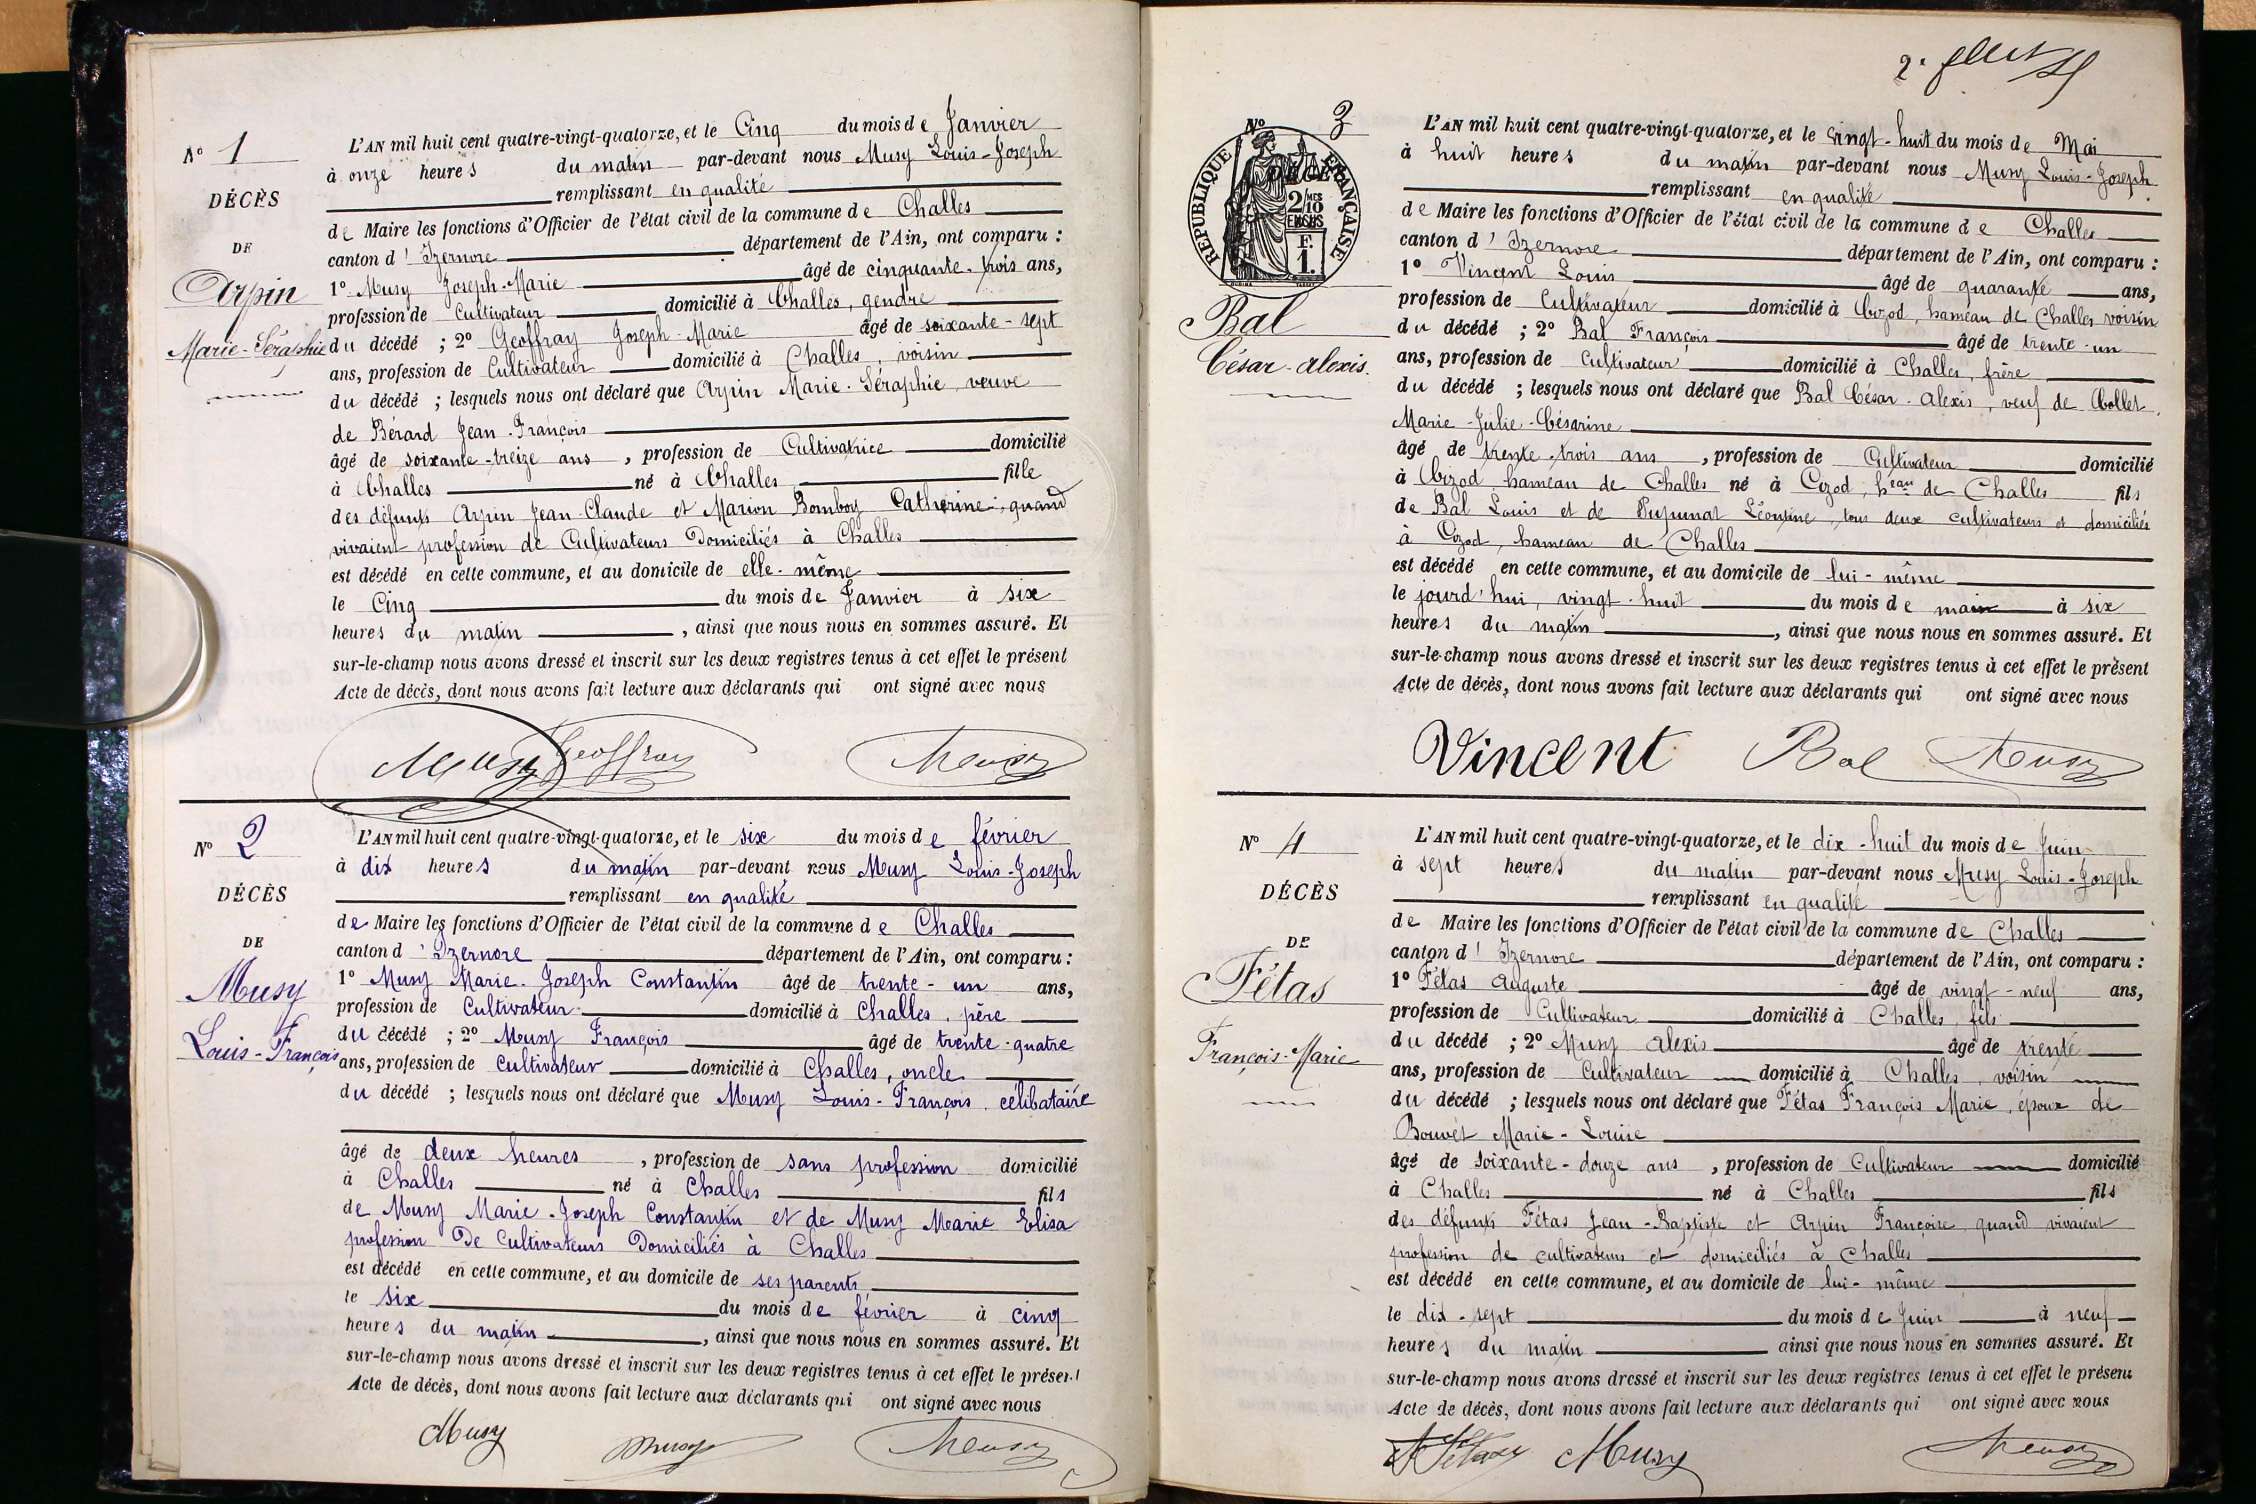 N° 1
DÉCÈS
DE
Arpin
Marie-Séraphie
L'AN mil huit cent quatre-vingt-quatorze, et le Cinq du mois de Janvier
à onze heures du matin par-devant nous Musy Louis-Joseph
remplissant en qualité
de Maire les fonctions d'Officier de l'état civil de la commune de Challes
canton d'Izernore département de l'Ain, ont comparu :
1° Musy Joseph-Marie âgé de cinquante-trois ans,
profession de Cultivateur domicilié à Challes, gendre
du décédé ; 2° Geoffray Joseph-Marie âgé de soixante-sept
ans, profession de Cultivateur domicilié à Challes, voisin
du décédé ; lesquels nous ont déclaré que Arpin Marie-Séraphie, veuve
de Bérard Jean-François
âgé de soixante-treize ans, profession de Cultivatrice domicilié
à Challes né à Challes fille
des défunts Arpin Jean-Claude et Marion Bomboy Catherine, quand
vivaient profession de Cultivateurs Domiciliés à Challes
est décédé en cette commune, et au domicile de elle-même
le Cinq du mois de Janvier à six
heures du matin, ainsi que nous nous en sommes assuré. Et
sur-le-champ nous avons dressé et inscrit sur les deux registres tenus à cet effet le présent
Acte de décès, dont nous avons fait lecture aux déclarants qui ont signé avec nous
Musy Geoffray Musy
N° 2
DÉCÈS
DE
Musy
Louis-François
L'AN mil huit cent quatre-vingt-quatorze, et le six du mois de février
à dix heures du matin par-devant nous Musy Louis-Joseph
remplissant en qualité
de Maire les fonctions d'Officier de l'état civil de la commune de Challes
canton d'Izernore département de l'Ain, ont comparu :
1° Musy Marie-Joseph Constantin âgé de trente-un ans,
profession de Cultivateur domicilié à Challes, père
du décédé ; 2° Musy François âgé de trente-quatre
ans, profession de Cultivateur domicilié à Challes, oncle
du décédé ; lesquels nous ont déclaré que Musy Louis-François, célibataire
âgé de deux heures, profession de sans profession domicilié
à Challes né à Challes fils
de Musy Marie-Joseph Constantin et de Musy Marie Elisa
profession De Cultivateurs Domiciliés à Challes
est décédé en cette commune, et au domicile de ses parents
le six du mois de février à cinq
heures du matin, ainsi que nous nous en sommes assuré. Et
sur-le-champ nous avons dressé et inscrit sur les deux registres tenus à cet effet le présent
Acte de décès, dont nous avons fait lecture aux déclarants qui ont signé avec nous
Musy Musy Musy
N° 3
REPUBLIQUE FRANÇAISE
2/10
EN SUS
F.
1.
Bal
César-Alexis.
L'AN mil huit cent quatre-vingt-quatorze, et le vingt-huit du mois de Mai
à huit heures du matin par-devant nous Musy Louis-Joseph
remplissant en qualité
de Maire les fonctions d'Officier de l'état civil de la commune de Challes
canton d'Izernore département de l'Ain, ont comparu :
1° Vincent Louis âgé de quarante ans,
profession de Cultivateur domicilié à Cizod, hameau de Challes voisin
du décédé ; 2° Bal François âgé de trente-un
ans, profession de Cultivateur domicilié à Challes, frère
du décédé ; lesquels nous ont déclaré que Bal César-Alexis, veuf de Collet
Marie-Julie-Césarine
âgé de trente-trois ans, profession de Cultivateur domicilié
à Cizod, hameau de Challes né à Cizod, heau de Challes fils
de Bal Louis et de Pupunat Léontine, tous deux cultivateurs et domiciliés
à Cizod, hameau de Challes
est décédé en cette commune, et au domicile de lui-même
le jourd'hui, vingt-huit du mois de mai à six
heures du matin, ainsi que nous nous en sommes assuré. Et
sur-le-champ nous avons dressé et inscrit sur les deux registres tenus à cet effet le présent
Acte de décès, dont nous avons fait lecture aux déclarants qui ont signé avec nous
Vincent Bal Musy
N° 4
DÉCÈS
DE
Fétas
François-Marie
L'AN mil huit cent quatre-vingt-quatorze, et le dix-huit du mois de Juin
à sept heures du matin par-devant nous Musy Louis-Joseph
remplissant en qualité
de Maire les fonctions d'Officier de l'état civil de la commune de Challes
canton d'Izernore département de l'Ain, ont comparu :
1° Fétas Auguste âgé de vingt-neuf ans,
profession de Cultivateur domicilié à Challes, fils
du décédé ; 2° Musy Alexis âgé de trente
ans, profession de Cultivateur domicilié à Challes, voisin
du décédé ; lesquels nous ont déclaré que Fétas François Marie, époux de
Bouvet Marie-Louise
âgé de soixante-douze ans, profession de Cultivateur domicilié
à Challes né à Challes fils
des défunts Fétas Jean-Baptiste et Arpin Françoise, quand vivaient
profession de cultivateurs et domiciliés à Challes
est décédé en cette commune, et au domicile de lui-même
le dix-sept du mois de Juin à neuf
heures du matin ainsi que nous nous en sommes assuré. Et
sur-le-champ nous avons dressé et inscrit sur les deux registres tenus à cet effet le présent
Acte de décès, dont nous avons fait lecture aux déclarants qui ont signé avec nous
A Fétas Musy Musy